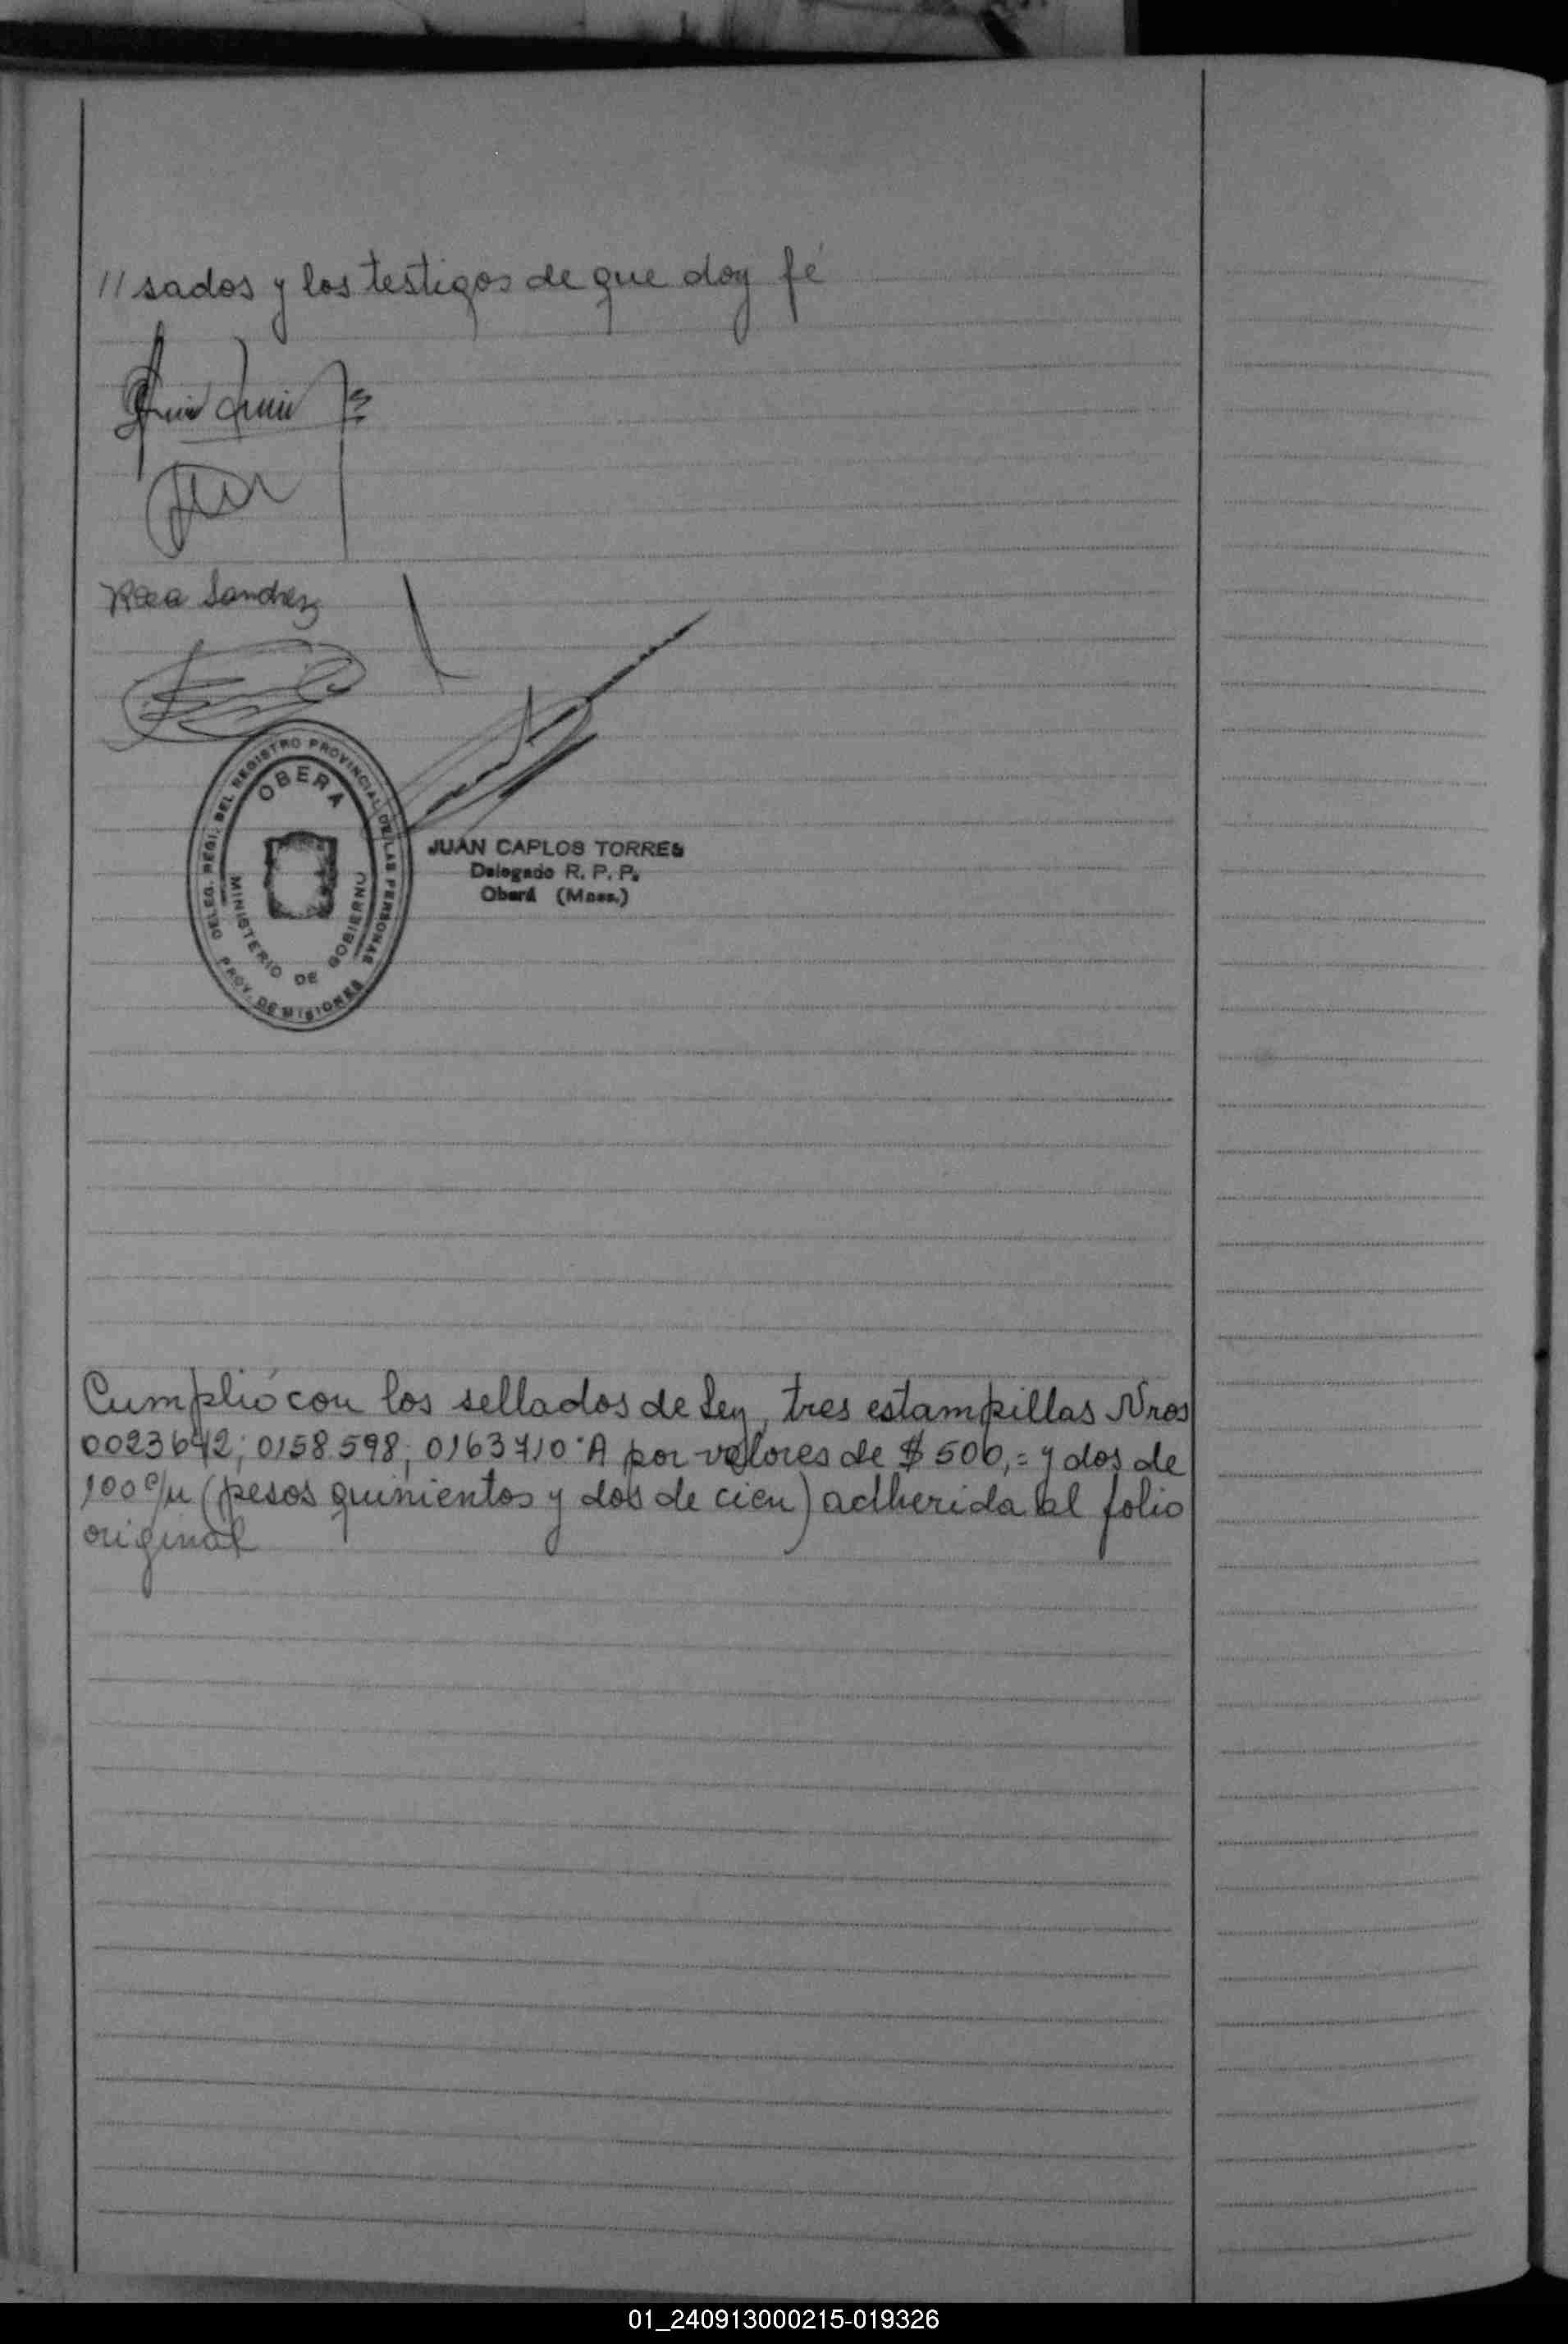 // sados y los testigos de que doy fé
Sanchez
DELEG. REGI. DEL REGISTRO PROVINCIAL DE LAS PERSONAS
OBERA
MINISTERIO DE GOBIERNO
PROV. DE MISIONES
JUAN CARLOS TORRES
Delegado R. P. P.
Oberá (Mnes.)
Cumplió con los sellados de Ley, tres estampillas Nros
0023642; 0158598; 0163710·A por valores de $ 500,= y dos de
100 c/u (pesos quinientos y dos de cien) adherida al folio
original
01_240913000215-019326